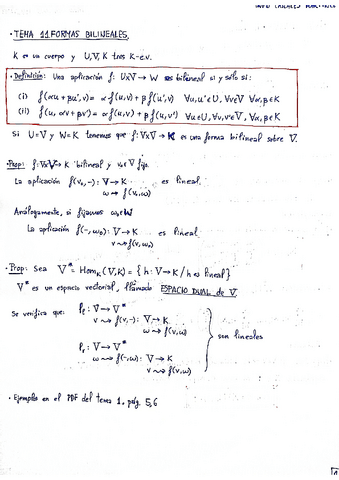 · TEMA 11. FORMAS BILINEALES.
K es un cuerpo y U,V,K tres K-e.v.
· Definición: Una aplicación f: U×V → W es bilineal si y sólo si:
(i) f(αu+βu',v) = αf(u,v) + βf(u',v) ∀u,u'∈U, ∀v∈V ∀α,β∈K
(ii) f(u, αv+βv') = αf(u,v) + βf(u,v') ∀u∈U, ∀v,v'∈V, ∀α,β∈K
Si U=V y W=K tenemos que f: V×V → K es una forma bilineal sobre V.
· Prop: f: V×V → K bilineal y v₀∈V fijo.
La aplicación f(v₀,-): V → K es lineal.
ω ↝ f(v₀,ω)
Análogamente, si fijamos ω₀∈W
La aplicación f(-,ω₀): V → K es lineal.
v ↝ f(v,ω₀)
· Prop: Sea V* = Hom_K(V,K) = { h: V → K / h es lineal }
V* es un espacio vectorial, llamado ESPACIO DUAL de V.
Se verifica que: V → V*
v ↝ f(v,-): V → K
ω ↝ f(v,ω)
V → V*
ω ↝ f(-,ω): V → K
v ↝ f(v,ω)
son lineales
· Ejemplos en el PDF del tema 1, pág. 5,6